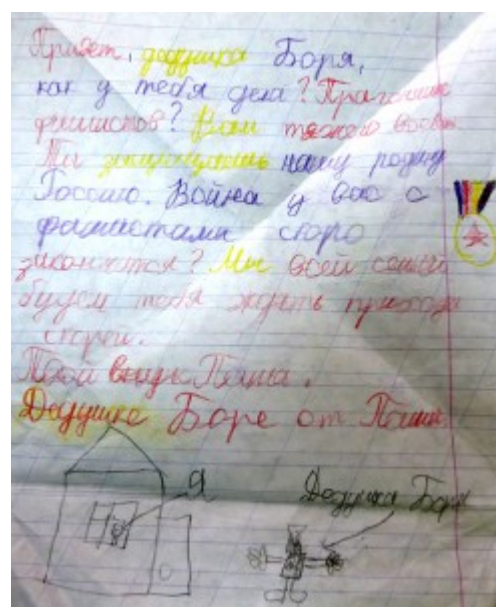 Привет, дедушка Боря,
как у тебя дела? Прагоните
фашистов? Вам тяжело воевать
Ты защищаешь нашу родину
Россию. Война у вас с
фашистами скоро
законхотся? Мы всей семьёй
будем тебя ждать приходи
скорей.
Твой внук Паша.
Дедушке Боре от Паши.
Я
Дедушка Боря